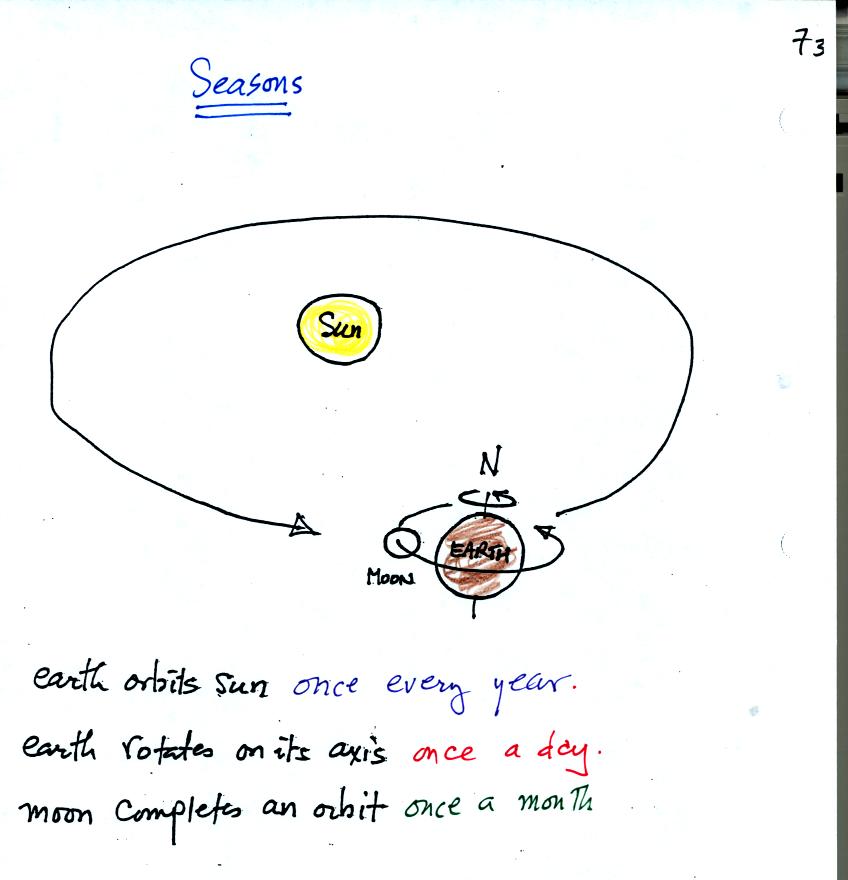 73
Seasons
Sun
N
EARTH
MOON
earth orbits sun once every year.
earth rotates on its axis once a day.
moon completes an orbit once a month